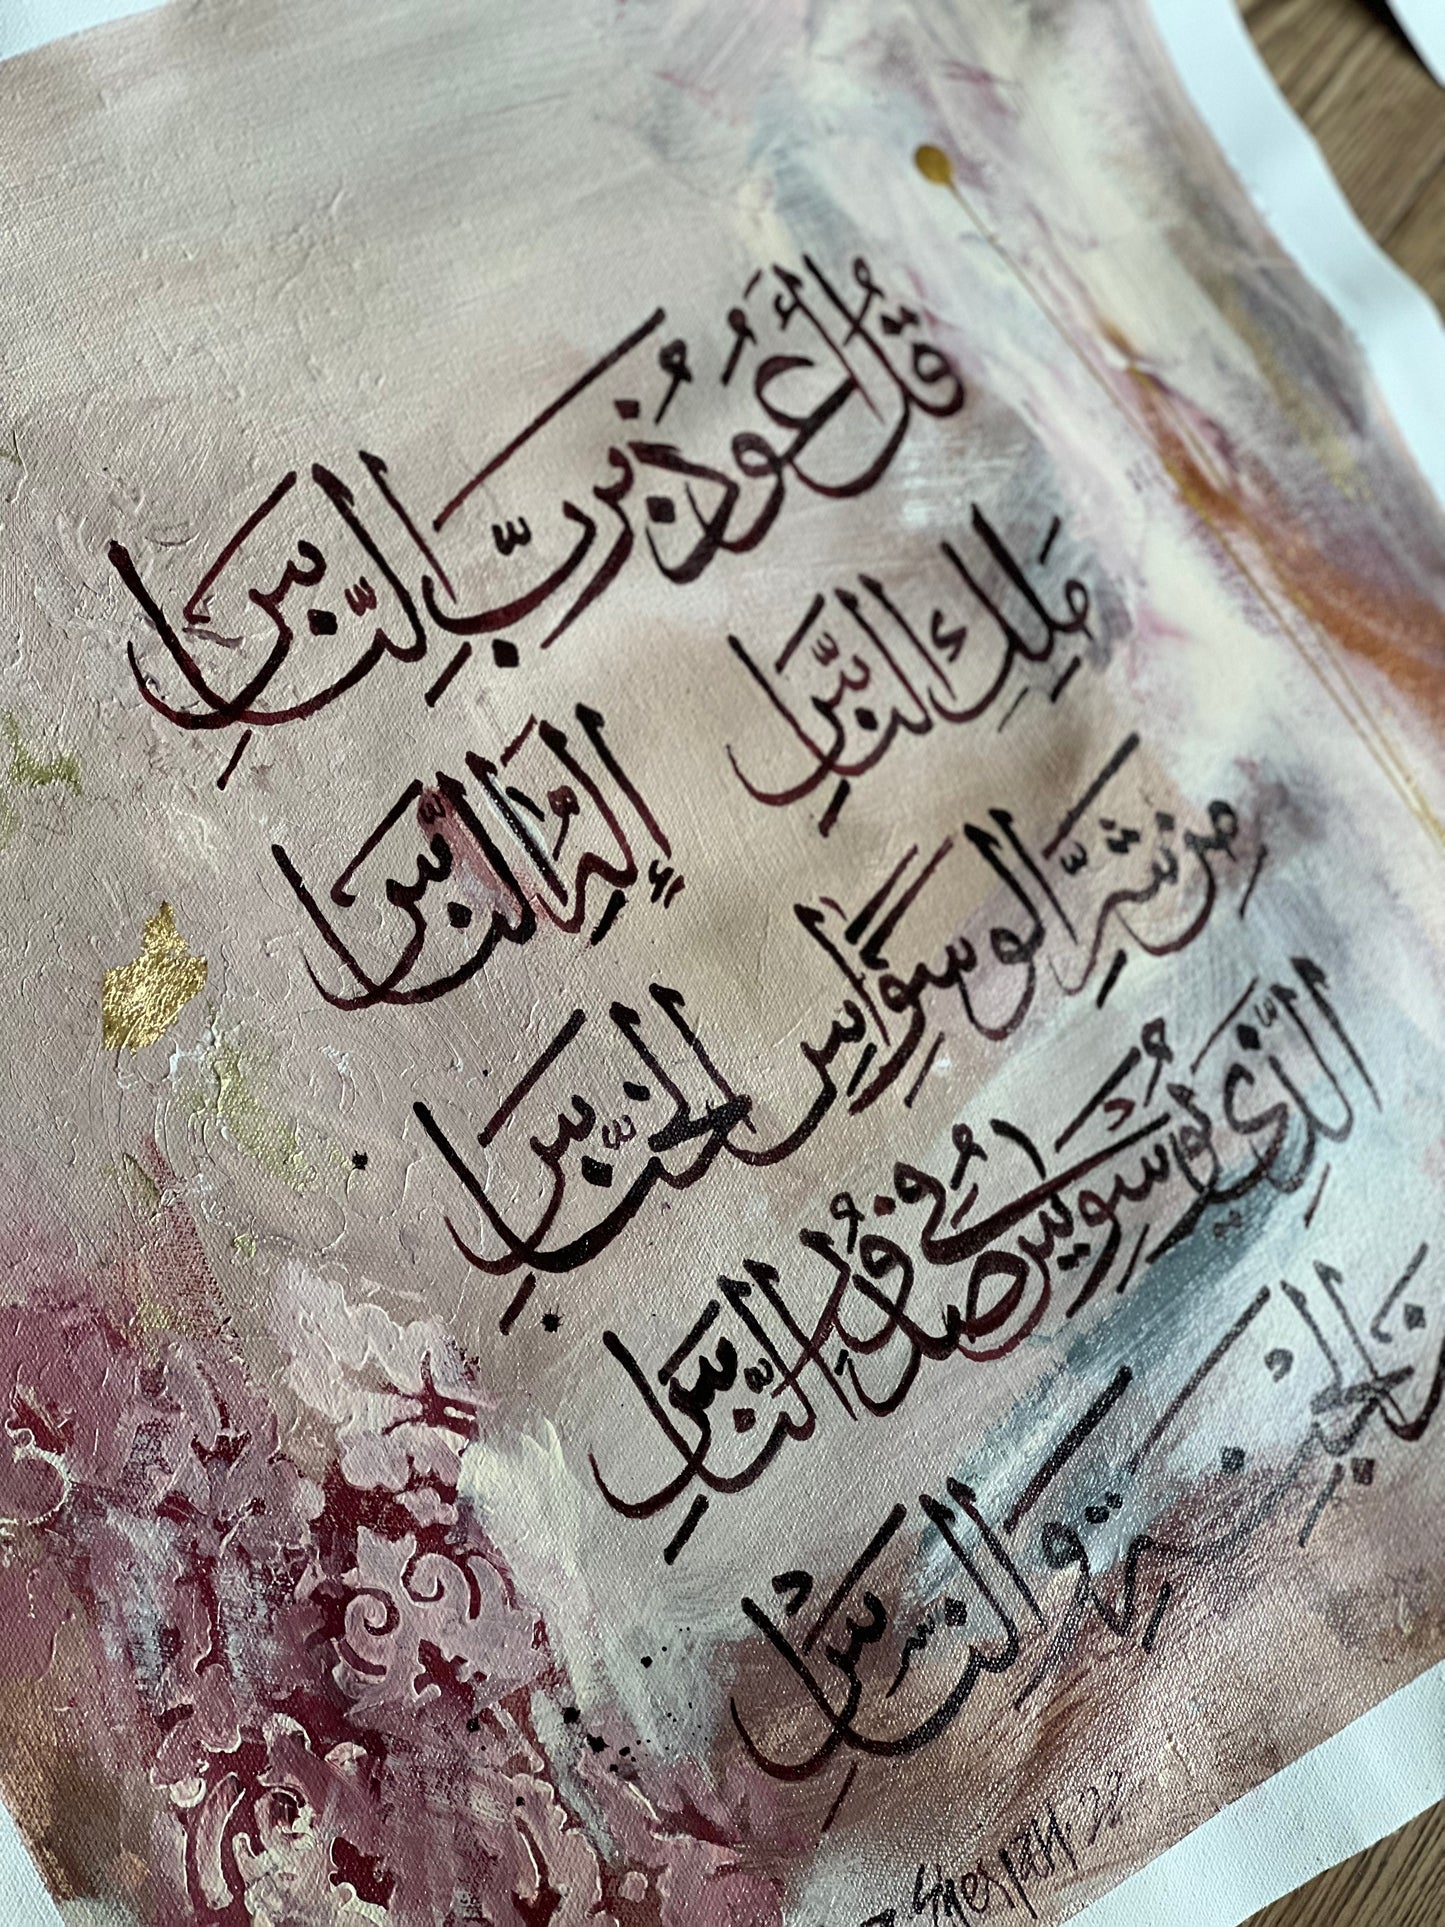 قُلْ أَعُوذُ بِرَبِّ النَّاسِ
مَلِكِ النَّاسِ
إِلَٰهِ النَّاسِ
مِن شَرِّ الْوَسْوَاسِ الْخَنَّاسِ
الَّذِي يُوَسْوِسُ فِي صُدُورِ النَّاسِ
مِنَ الْجِنَّةِ وَالنَّاسِ